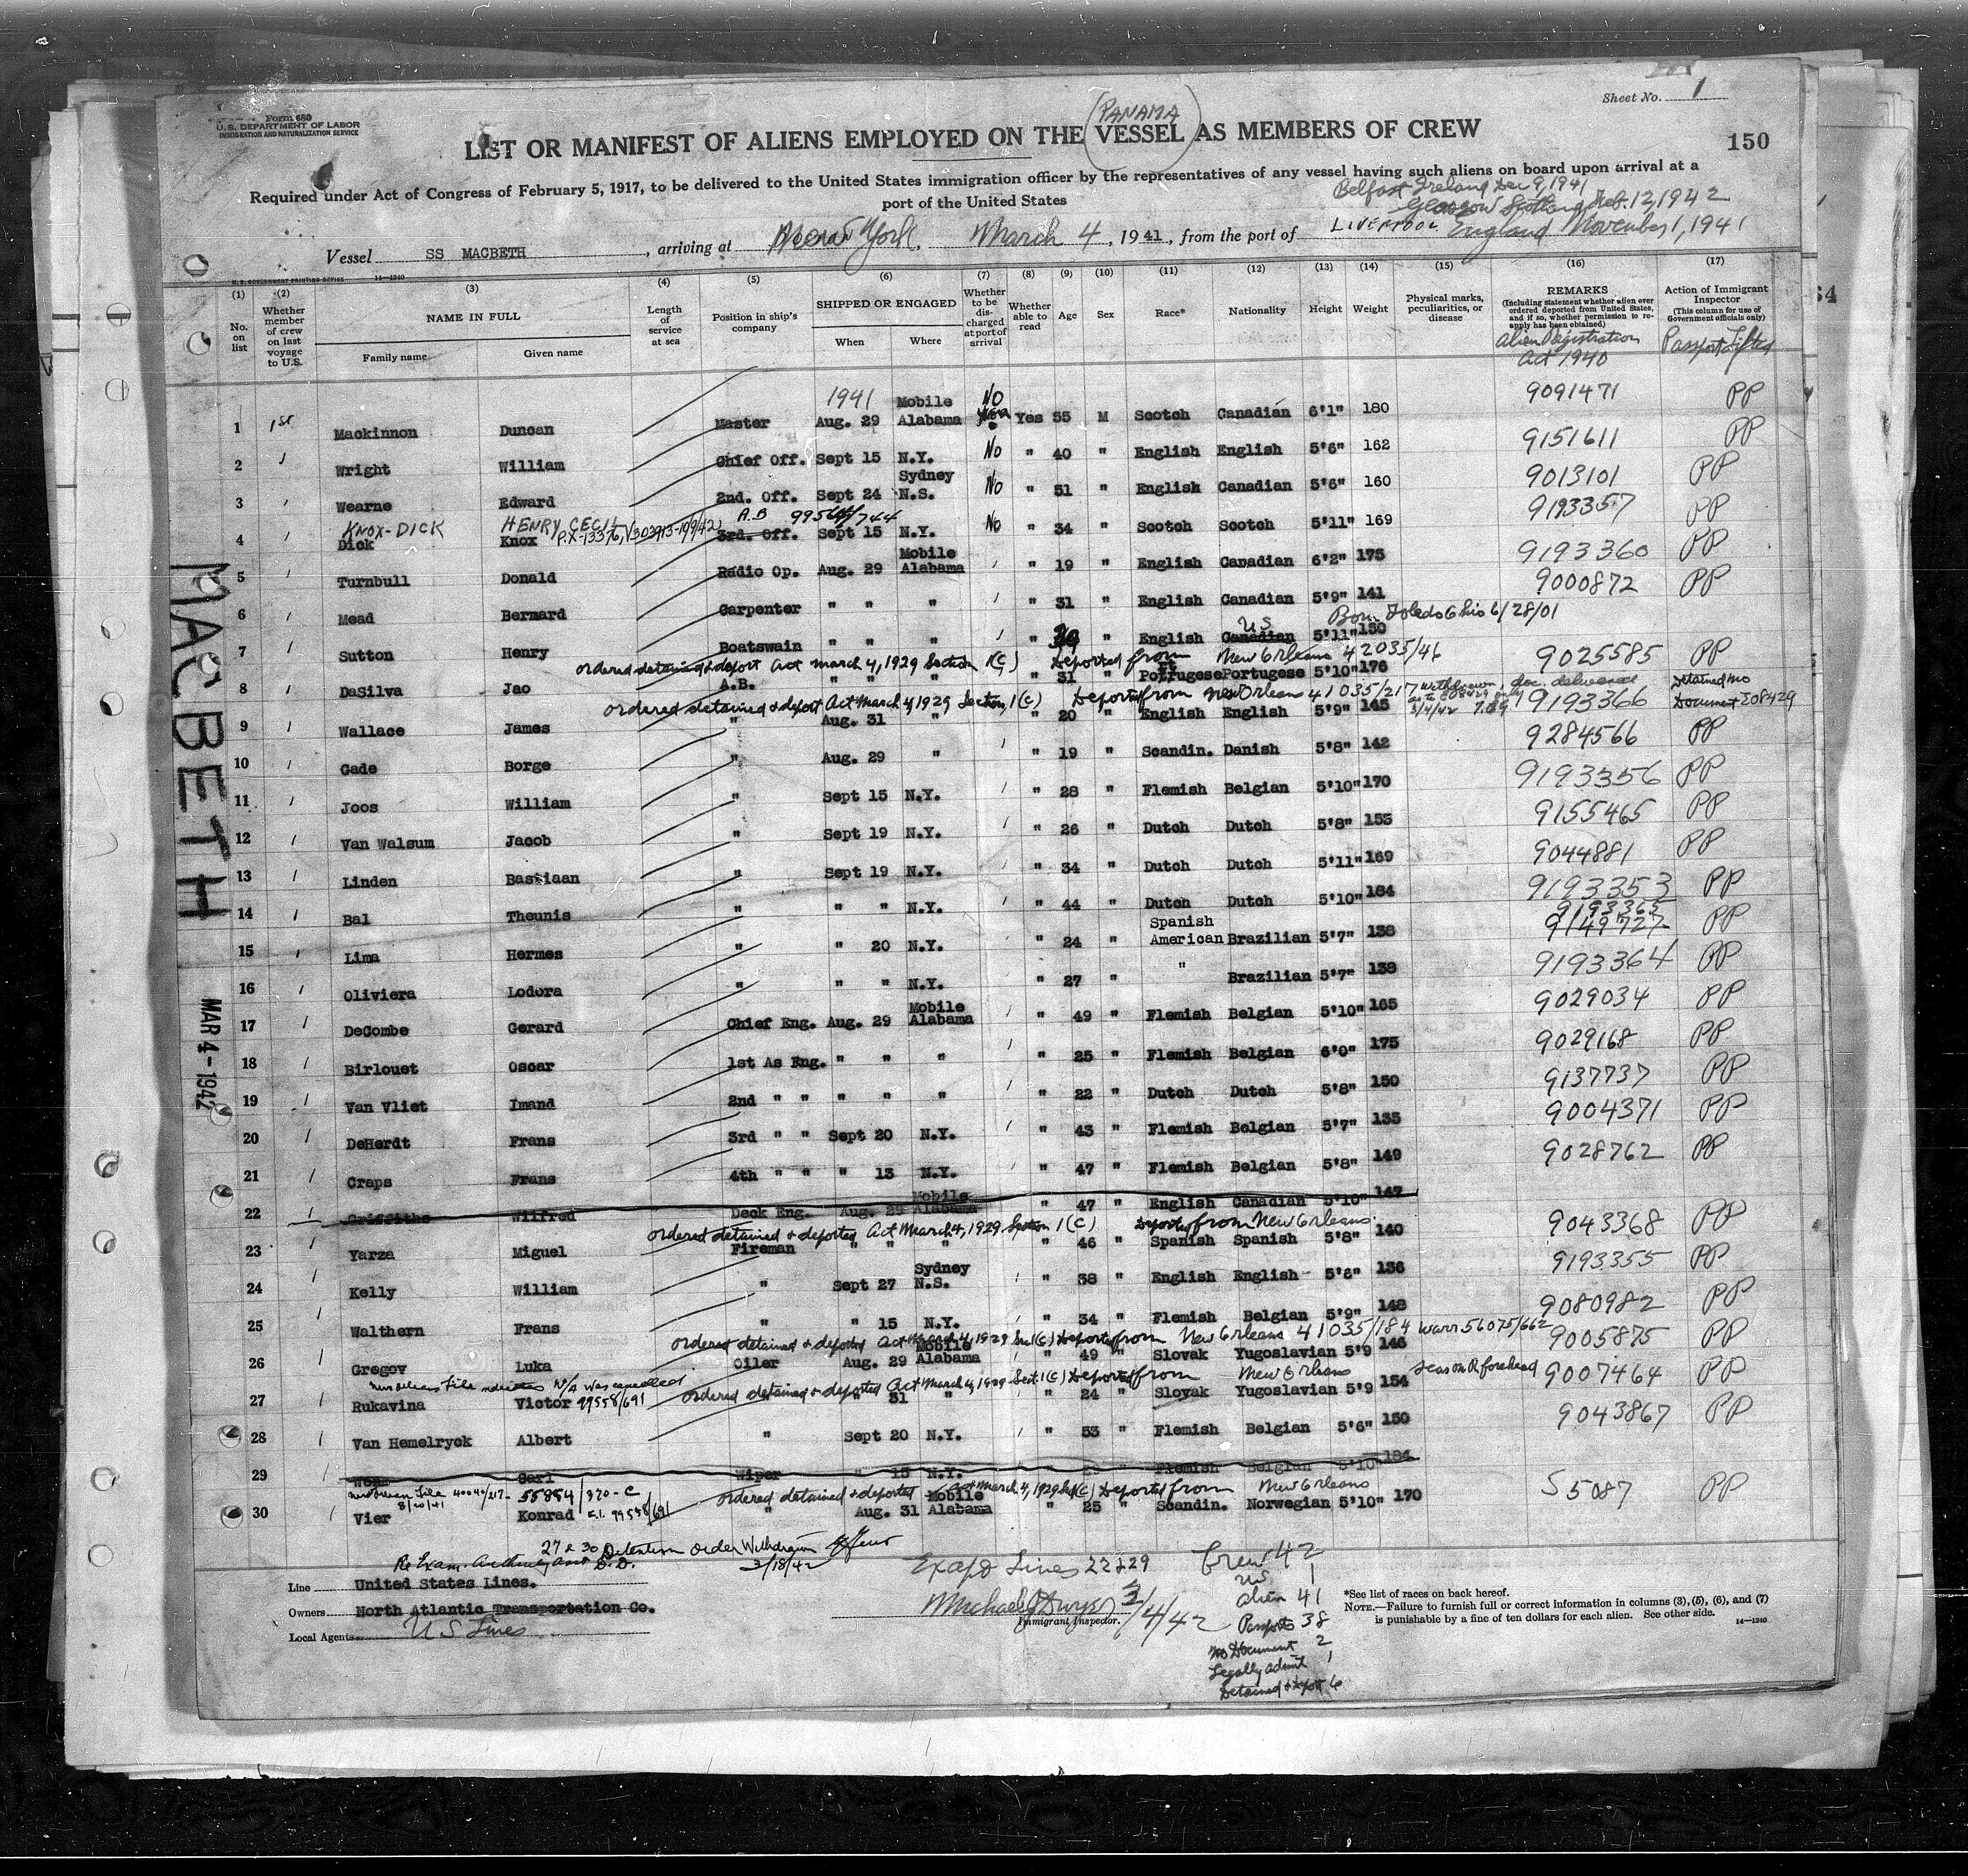 Sheet No. 1
Form 680
U.S. DEPARTMENT OF LABOR
IMMIGRATION AND NATURALIZATION SERVICE
(PANAMA)
LIST OR MANIFEST OF ALIENS EMPLOYED ON THE VESSEL AS MEMBERS OF CREW
150
Required under Act of Congress of February 5, 1917, to be delivered to the United States immigration officer by the representatives of any vessel having such aliens on board upon arrival at a
port of the United States
Belfast Ireland Dec 9, 1941
Glasgow Scotland Feb. 12, 1942
Vessel SS MACBETH, arriving at New York, March 4, 1941, from the port of LIVERPOOL England November 1, 1941
U.S. GOVERNMENT PRINTING OFFICE 14-1240
(1) (2) (3) (4) (5) (6) (7) (8) (9) (10) (11) (12) (13) (14) (15) (16) (17)
No. on list
Whether member of crew on last voyage to U.S.
NAME IN FULL
Family name Given name
Length of service at sea
Position in ship's company
SHIPPED OR ENGAGED
When Where
Whether to be discharged at port of arrival
Whether able to read
Age Sex Race* Nationality Height Weight
Physical marks, peculiarities, or disease
REMARKS
(Including statement whether alien ever ordered deported from United States, and if so, whether permission to reapply has been obtained)
Alien Registration Act 1940
Action of Immigrant Inspector
(This column for use of Government officials only)
Passport Lifted
1 1st Mackinnon Duncan Master 1941 Aug. 29 Mobile Alabama No Yes 55 M Scotch Canadian 6'1" 180 9091471 PP
2 Wright William Chief Off. Sept 15 N.Y. No " 40 " English English 5'6" 162 9151611 PP
3 Wearne Edward 2nd. Off. Sept 24 Sydney N.S. No " 51 " English Canadian 5'6" 160 9013101 PP
KNOX-DICK HENRY CECIL A.B
4 Dick Knox 3rd. Off. Sept 15 N.Y. No " 34 " Scotch Scotch 5'11" 169 9193357 PP
5 Turnbull Donald Radio Op. Aug. 29 Mobile Alabama " 19 " English Canadian 6'2" 175 9193360 PP
6 Mead Bernard Carpenter " " " " 31 " English Canadian 5'9" 141 9000872 PP
Born Toledo Ohio 6/28/01
7 Sutton Henry Boatswain " " " " " English Canadian US 5'11" 150
ordered detained & deport Act March 4, 1929 Section 1(c) Deported from New Orleans 42035/46
8 DaSilva Jao A.B. " " " " 31 " Portugese Portugese 5'10" 176 9025585 PP
ordered detained & deport Act March 4, 1929 Section 1(c) Deported from New Orleans 41035/217
9 Wallace James " Aug. 31 " " 20 " English English 5'9" 145 9193366 Detained no Document
10 Gade Borge " Aug. 29 " " 19 " Scandin. Danish 5'8" 142 9284566 PP
11 Joos William " Sept 15 N.Y. " 28 " Flemish Belgian 5'10" 170 9193356 PP
12 Van Walsum Jacob " Sept 19 N.Y. " 26 " Dutch Dutch 5'8" 155 9155465 PP
13 Linden Bastiaan " Sept 19 N.Y. " 34 " Dutch Dutch 5'11" 169 9044881 PP
14 Bal Theunis " " " N.Y. " 44 " Dutch Dutch 5'10" 184 9193353 PP
15 Lima Hermes " " 20 N.Y. " 24 " Spanish American Brazilian 5'7" 138 9193365 9149727 PP
16 Oliviera Lodora " " " N.Y. " 27 " " Brazilian 5'7" 138 9193364 PP
17 DeCombe Gerard Chief Eng. Aug. 29 Mobile Alabama " 49 " Flemish Belgian 5'10" 165 9029034 PP
18 Birlouet Oscar 1st As Eng. " " " " 25 " Flemish Belgian 6'0" 175 9029168 PP
19 Van Vliet Imand 2nd " " " " " " 22 " Dutch Dutch 5'8" 150 9137737 PP
20 DeHerdt Frans 3rd " " Sept 20 N.Y. " 43 " Flemish Belgian 5'7" 135 9004371 PP
21 Craps Frans 4th " " " 13 N.Y. " 47 " Flemish Belgian 5'8" 149 9028762 PP
22 Griffiths Wilfred Deck Eng. Aug. 29 Mobile Alabama " 47 " English Canadian 5'10" 147
ordered detained & deported Act March 4, 1929 Section 1(c) Deported from New Orleans
23 Yarza Miguel Fireman " " " " 46 " Spanish Spanish 5'8" 140 9043368 PP
24 Kelly William " Sept 27 Sydney N.S. " 38 " English English 5'6" 136 9193355 PP
25 Walthern Frans " " 15 N.Y. " 34 " Flemish Belgian 5'9" 148 9080982 PP
ordered detained & deported Act March 4, 1929 Sec 1(c) Deported from New Orleans 41035/184 Warr 56075/662
26 Gregov Luka Oiler Aug. 29 Mobile Alabama " 49 " Slovak Yugoslavian 5'9 146 9005875 PP
New Orleans File indicates W/A was cancelled ordered detained & deported Act March 4, 1929 Sect. 1(c) Deported from New Orleans
27 Rukavina Victor 99558/691 " 31 " " 24 " Slovak Yugoslavian 5'9 154 scar on R forehead 9007464 PP
28 Van Hemelryck Albert " Sept 20 N.Y. " 53 " Flemish Belgian 5'6" 150 9043867 PP
29 Carl Wiper " 15 N.Y. Flemish Belgian 5'10" 184
New Orleans File 40040/217 ordered detained & deported Act March 4, 1929 Deported from New Orleans
30 Vier Konrad 99558/691 " Aug. 31 Mobile Alabama " 25 " Scandin. Norwegian 5'10" 170 S5087 PP
MACBETH
MAR 4-1942
27 & 30 Detention order Withdrawn
3/18/42
Line United States Lines.
Owners North Atlantic Transportation Co.
Local Agents U S Lines
Lines 22229
Immigrant Inspector.
3/4/42
Crew 42
US 1
Alien 41
Passports 38
No Document 2
Legally admit 1
Detained & Deport 6
*See list of races on back hereof.
NOTE.—Failure to furnish full or correct information in columns (3), (5), (6), and (7)
is punishable by a fine of ten dollars for each alien. See other side. 14-1240